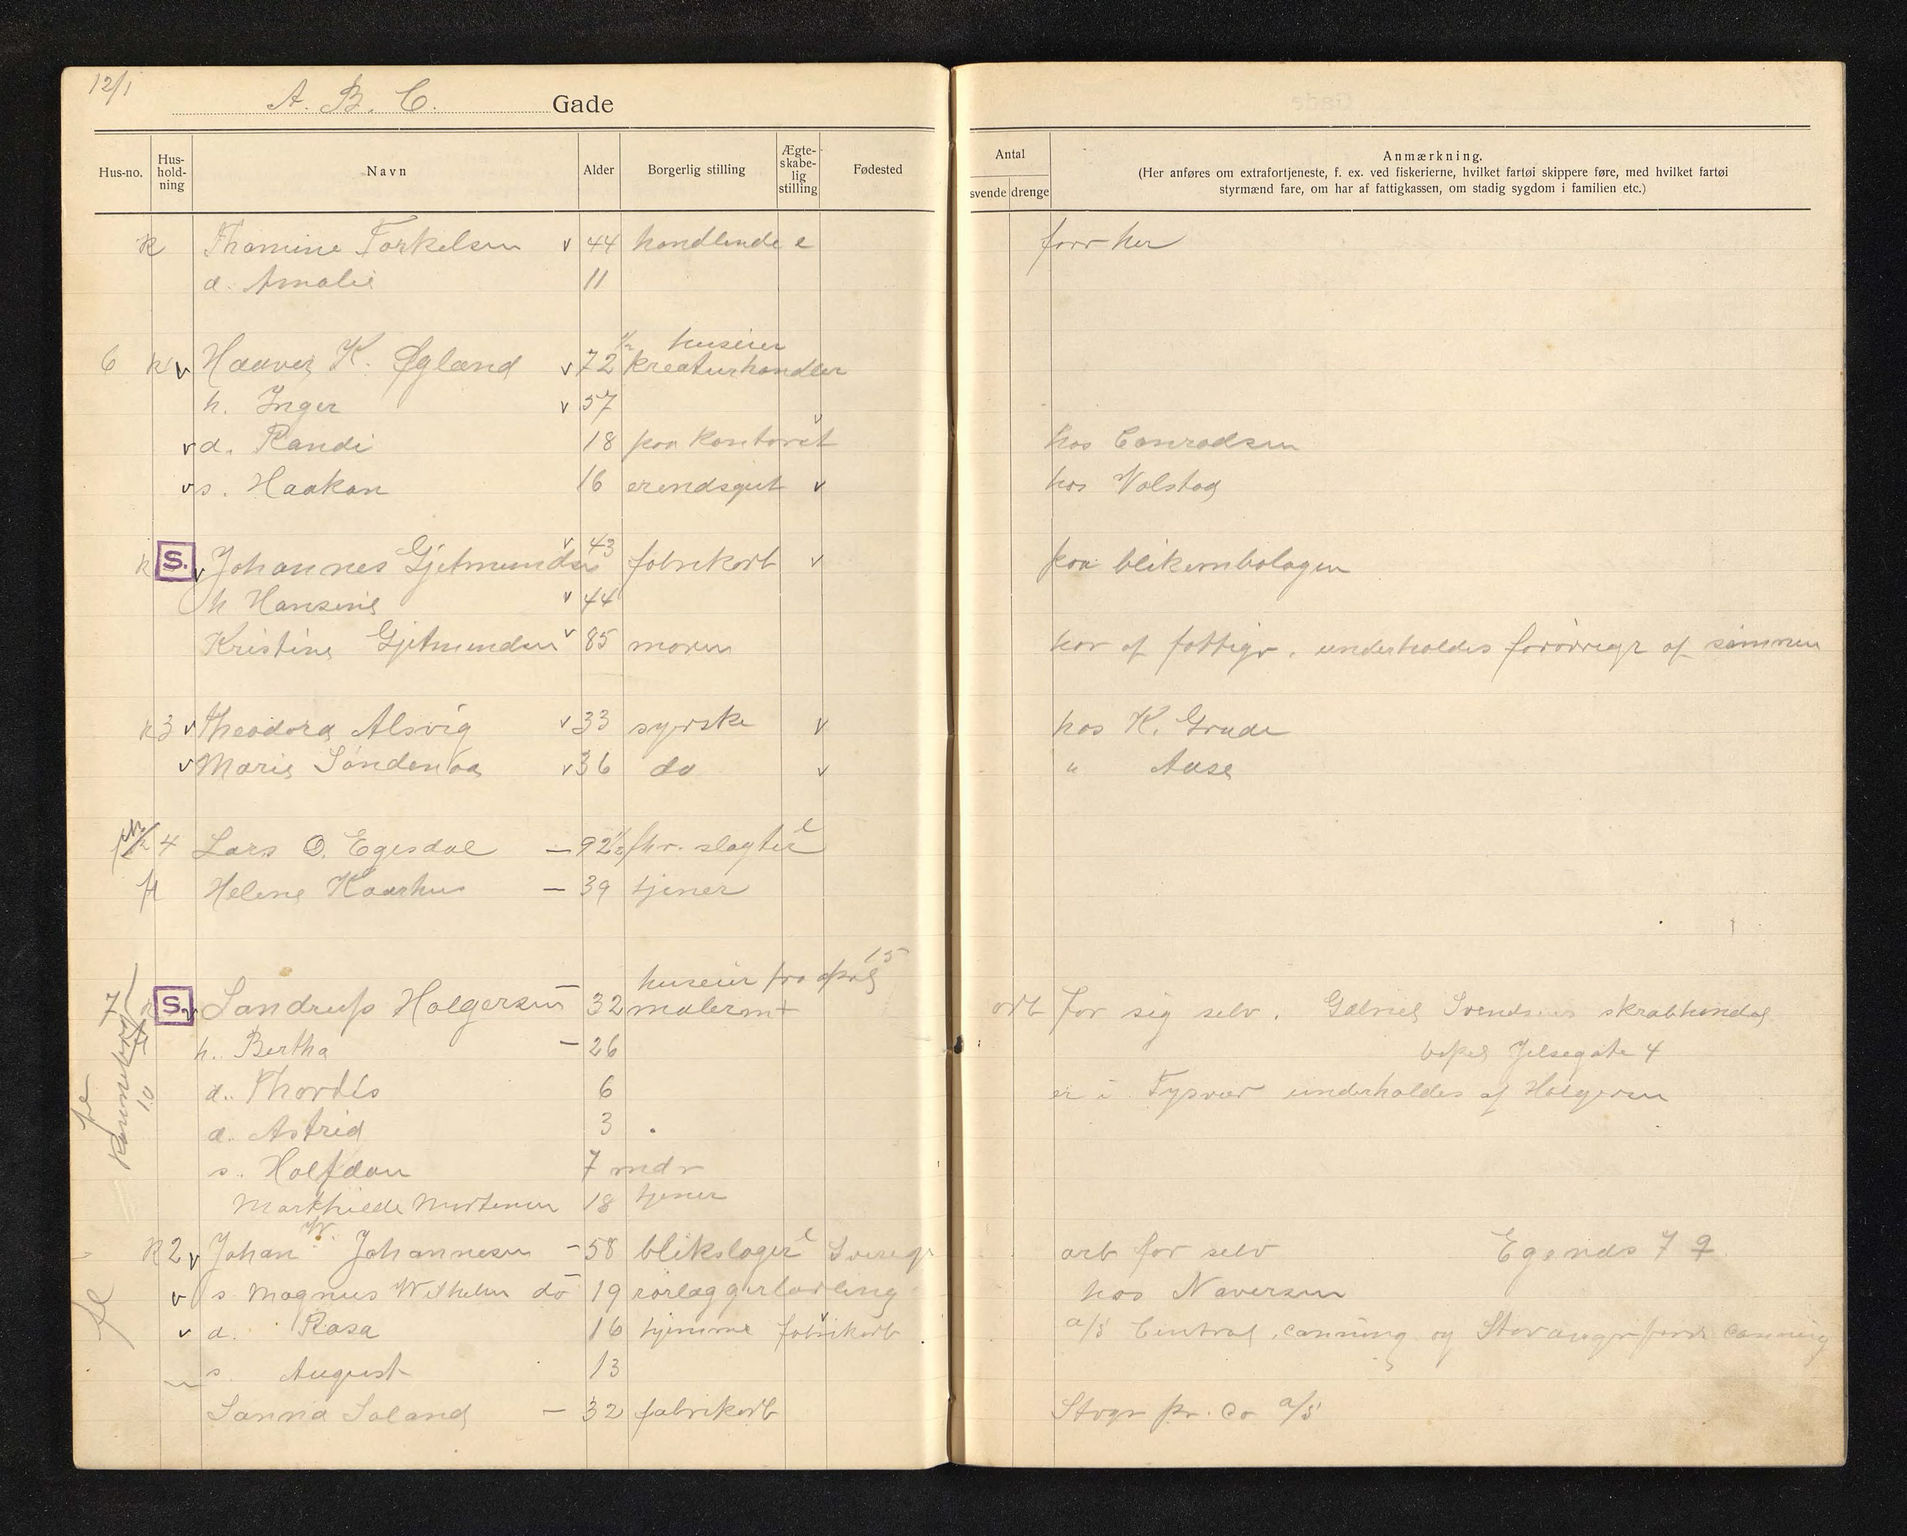 12/1
A. B. C. Gade
Hus-no. Hus-hold-ning Navn Alder Borgerlig stilling Ægte-skabe-lig stilling Fødested Antal svende drenge Anmærkning.
(Her anføres om extrafortjeneste, f. ex. ved fiskerierne, hvilket fartøi skippere føre, med hvilket fartøi
styrmænd fare, om har af fattigkassen, om stadig sygdom i familien etc.)
k Thomine Torkelsen v 44 handlende e forr her
d. Amalie 11
huseier
6 k v Haaver K. Øgland v 72 1/2 kreaturhandler
h. Inger v 57
v d. Randi 18 paa kontoret v hos Conradsen
v s. Haakon 16 erendsgut v hos Volstad
k S. v Johannes Gjetmundsen v 43 fabrikarb v paa blikembalagen
h Hansine v 44
Kristine Gjetmundsen v 85 moren har af fattigv. underholdes forøvrigt af sønnen
k 3 v Theodora Alsvig v 33 syerske v hos K. Grude
v Marie Søndenaa v 36 do v " Aase
4 Lars O. Egesdal — 92 1/2 fhv. slagter e
fl Helene Kaarhus — 39 tjener
huseier fra april 15
7 k S. v Sandrup Holgersen — 32 malerm + arb for sig selv. Gabriel Svendsens skrabhandel
h. Bertha — 26 bopel Jelsegate 4
10 d. Thordis 6 er i Tysvær underholdes af Holgersen
d. Astrid 3
s. Halfdan 7 mdr
Marthilde Mortensen 18 tjener
k 2 v Johan W. Johannesen — 58 blikslager e Sverige arb for selv Egends 7 9
v s Magnus Wilhelm do 19 rørlæggerlærling hos Naversen
v d. Rosa 16 hjemme fabrikarb v a/s Central canning og Stavangerfjord canning
s. August 13
Sanna Soland — 32 fabrikarb Stvgr pr. Co a/s